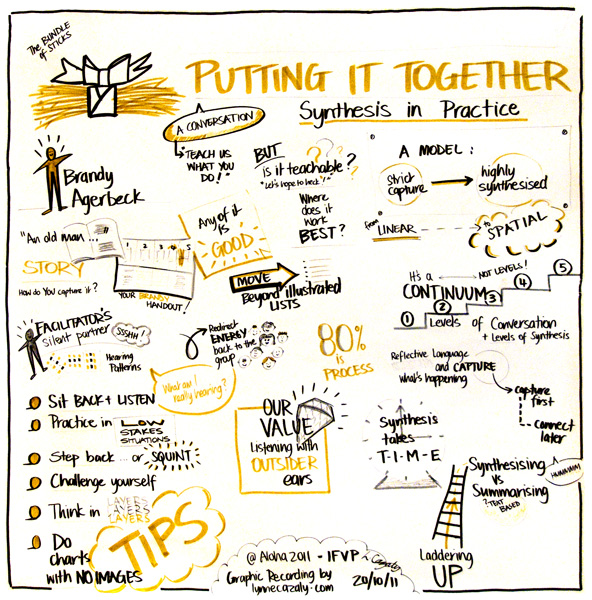 The BUNDLE
of STICKS
PUTTING IT TOGETHER
Synthesis in Practice
A CONVERSATION
"TEACH US
WHAT YOU
DO!"
BUT
is it teachable?
"Let's hope to heck!"
Where
does it
work
BEST?
A MODEL:
Strict
capture
highly
synthesised
from
LINEAR
to
SPATIAL
Brandy
Agerbeck
"An old man...
STORY
How do You capture it?
1 2 3 4 5
YOUR BRANDY
HANDOUT!
Any of
it
is
GOOD
MOVE
Beyond illustrated
LISTS
It's a
NOT LEVELS!
CONTINUUM
1 2 3 4 5
Levels of Conversation
+ Levels of Synthesis
FACILITATOR'S
silent partner
SSSHH!
Hearing
Patterns
Redirect
ENERGY
back to the
group
80%
is
PROCESS
Reflective Language
and CAPTURE
what's happening
capture
first
connect
later
What am I
really hearing?
Sit BACK + LISTEN
Practice in LOW
STAKES
SITUATIONS
Step back ... or SQUINT
Challenge yourself
Think in LAYERS
LAYERS
LAYERS
Do
charts
with NO IMAGES
TIPS
OUR
VALUE
Listening with
OUTSIDER
ears
Synthesis
takes
T-I-M-E
Synthesising
vs
Summarising
? TEXT
BASED
HUMMMM
Laddering
UP
@ Aloha 2011 - IFVP
Graphic Recording by
lynnecazaly.com
L Cazaly
20/10/11